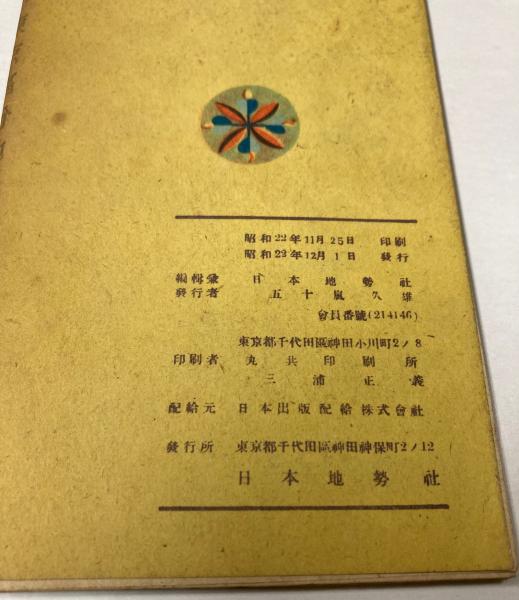 昭和22年11月25日 印刷
昭和22年12月1日 發行
編輯兼 日本地勢社
發行者 五十嵐久雄
會員番號(214146)
東京都千代田區神田小川町2ノ8
印刷者 丸共印刷所
三浦正義
配給元 日本出版配給株式會社
發行所 東京都千代田區神田神保町2ノ12
日本地勢社